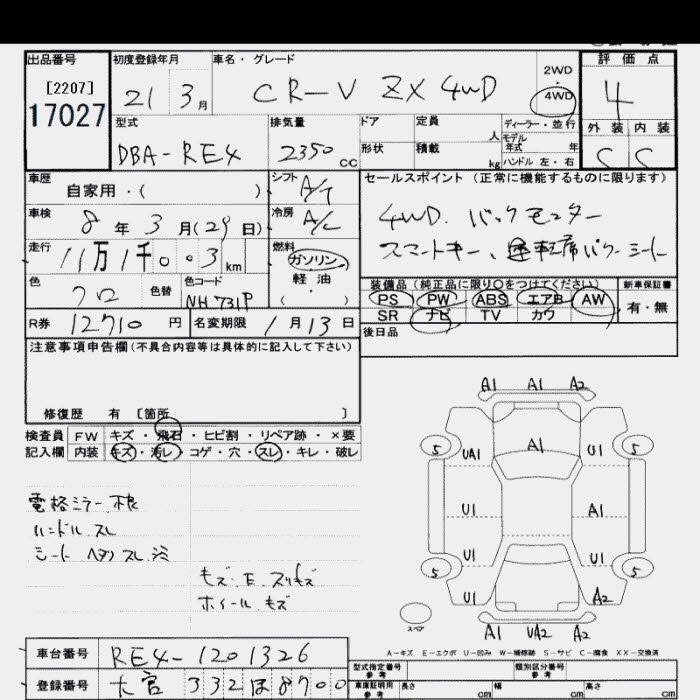 出品番号 初度登録年月 車名・グレード 2WD 評価点
[2207] 21 3月 CR-V ZX 4WD 4WD 4
17027
型式 排気量 ドア 定員 人 ディーラー・並行 外装 内装
DBA-RE4 2350 CC 形状 積載 kg モデル年式 年 C C
ハンドル 左・右
車歴 自家用・( ) シフト A/T セールスポイント (正常に機能するものに限ります)
車検 8年3月(29日) 冷房 A/C 4WD. バックモニター
走行 11万1千003km 燃料 ガソリン 軽油 ( ・ ) スマートキー、運転席パワーシート
色 クロ 色替 色コード NH731P 装備品(純正品に限り○をつけてください) 新車保証書
PS PW ABS エアB AW 有・無
R券 12710円 名変期限 1月13日 SR ナビ TV カワ
注意事項申告欄(不具合内容等は具体的に記入して下さい) 後日品
修復歴 有 [箇所 ]
検査員 FW キズ・飛石・ヒビ割・リペア跡・×要
記入欄 内装 キズ・汚レ・コゲ・穴・スレ・キレ・破レ
A1 A1 A2
5 UA1 A1 U1 5
U1 A1
5 U1 U1 5
U1 A2
スペア
A1 UA2 A2
電格ミラー不良
ハンドル スレ
シート ヘタリ スレ シミ
キズ・E スリキズ
ホイール キズ
A-キズ E-エクボ U-凹み W-補修跡 S-サビ C-腐食 XX-交換済
車台番号 RE4-1201326 型式指定番号 参考 類別区分番号 参考
登録番号 大宮 332 ほ 8700 車庫証明用 参考 長さ cm 幅 cm 高さ cm